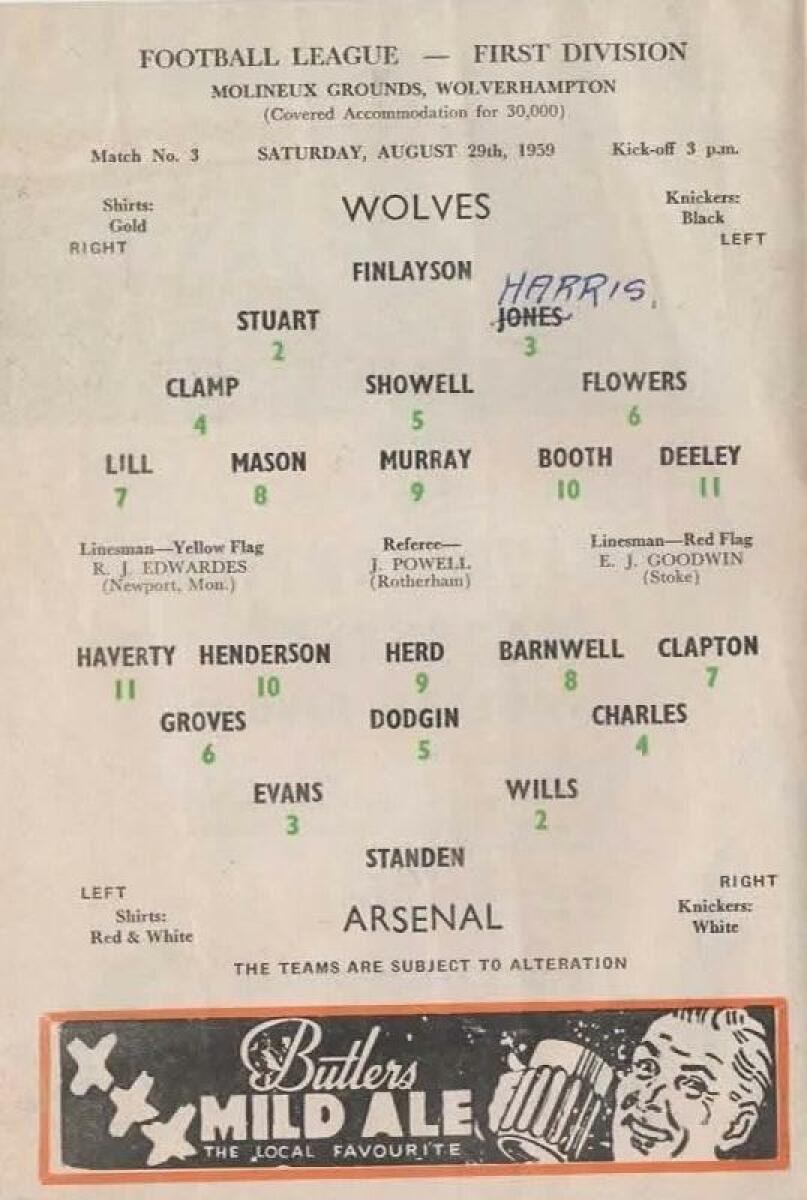 FOOTBALL LEAGUE — FIRST DIVISION
MOLINEUX GROUNDS, WOLVERHAMPTON
(Covered Accommodation for 30,000)
Match No. 3 SATURDAY, AUGUST 29th, 1959 Kick-off 3 p.m.
Shirts: WOLVES Knickers:
Gold Black
RIGHT LEFT
FINLAYSON
HARRIS.
STUART JONES
2 3
CLAMP SHOWELL FLOWERS
4 5 6
LILL MASON MURRAY BOOTH DEELEY
7 8 9 10 11
Linesman—Yellow Flag Referee— Linesman—Red Flag
R. J. EDWARDES J. POWELL E. J. GOODWIN
(Newport, Mon.) (Rotherham) (Stoke)
HAVERTY HENDERSON HERD BARNWELL CLAPTON
11 10 9 8 7
GROVES DODGIN CHARLES
6 5 4
EVANS WILLS
3 2
STANDEN
LEFT RIGHT
Shirts: ARSENAL Knickers:
Red & White White
THE TEAMS ARE SUBJECT TO ALTERATION
Butlers
MILD ALE
THE LOCAL FAVOURITE